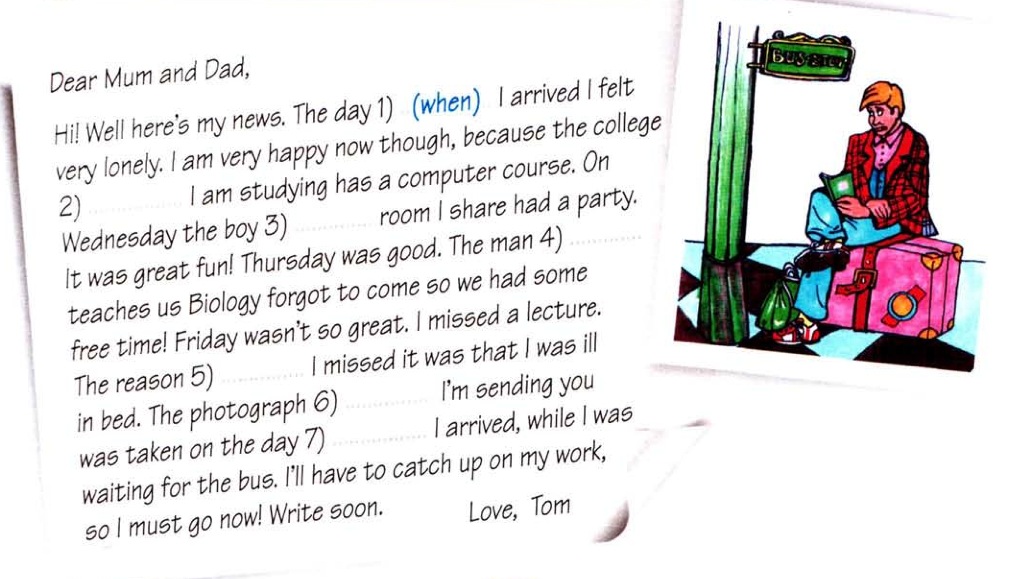 Dear Mum and Dad,
Hi! Well here's my news. The day 1) (when) I arrived I felt
very lonely. I am very happy now though, because the college
2) ............... I am studying has a computer course. On
Wednesday the boy 3) ............... room I share had a party.
It was great fun! Thursday was good. The man 4) ...............
teaches us Biology forgot to come so we had some
free time! Friday wasn't so great. I missed a lecture.
The reason 5) ............... I missed it was that I was ill
in bed. The photograph 6) ............... I'm sending you
was taken on the day 7) ............... I arrived, while I was
waiting for the bus. I'll have to catch up on my work,
so I must go now! Write soon.
Love, Tom
BUS STOP